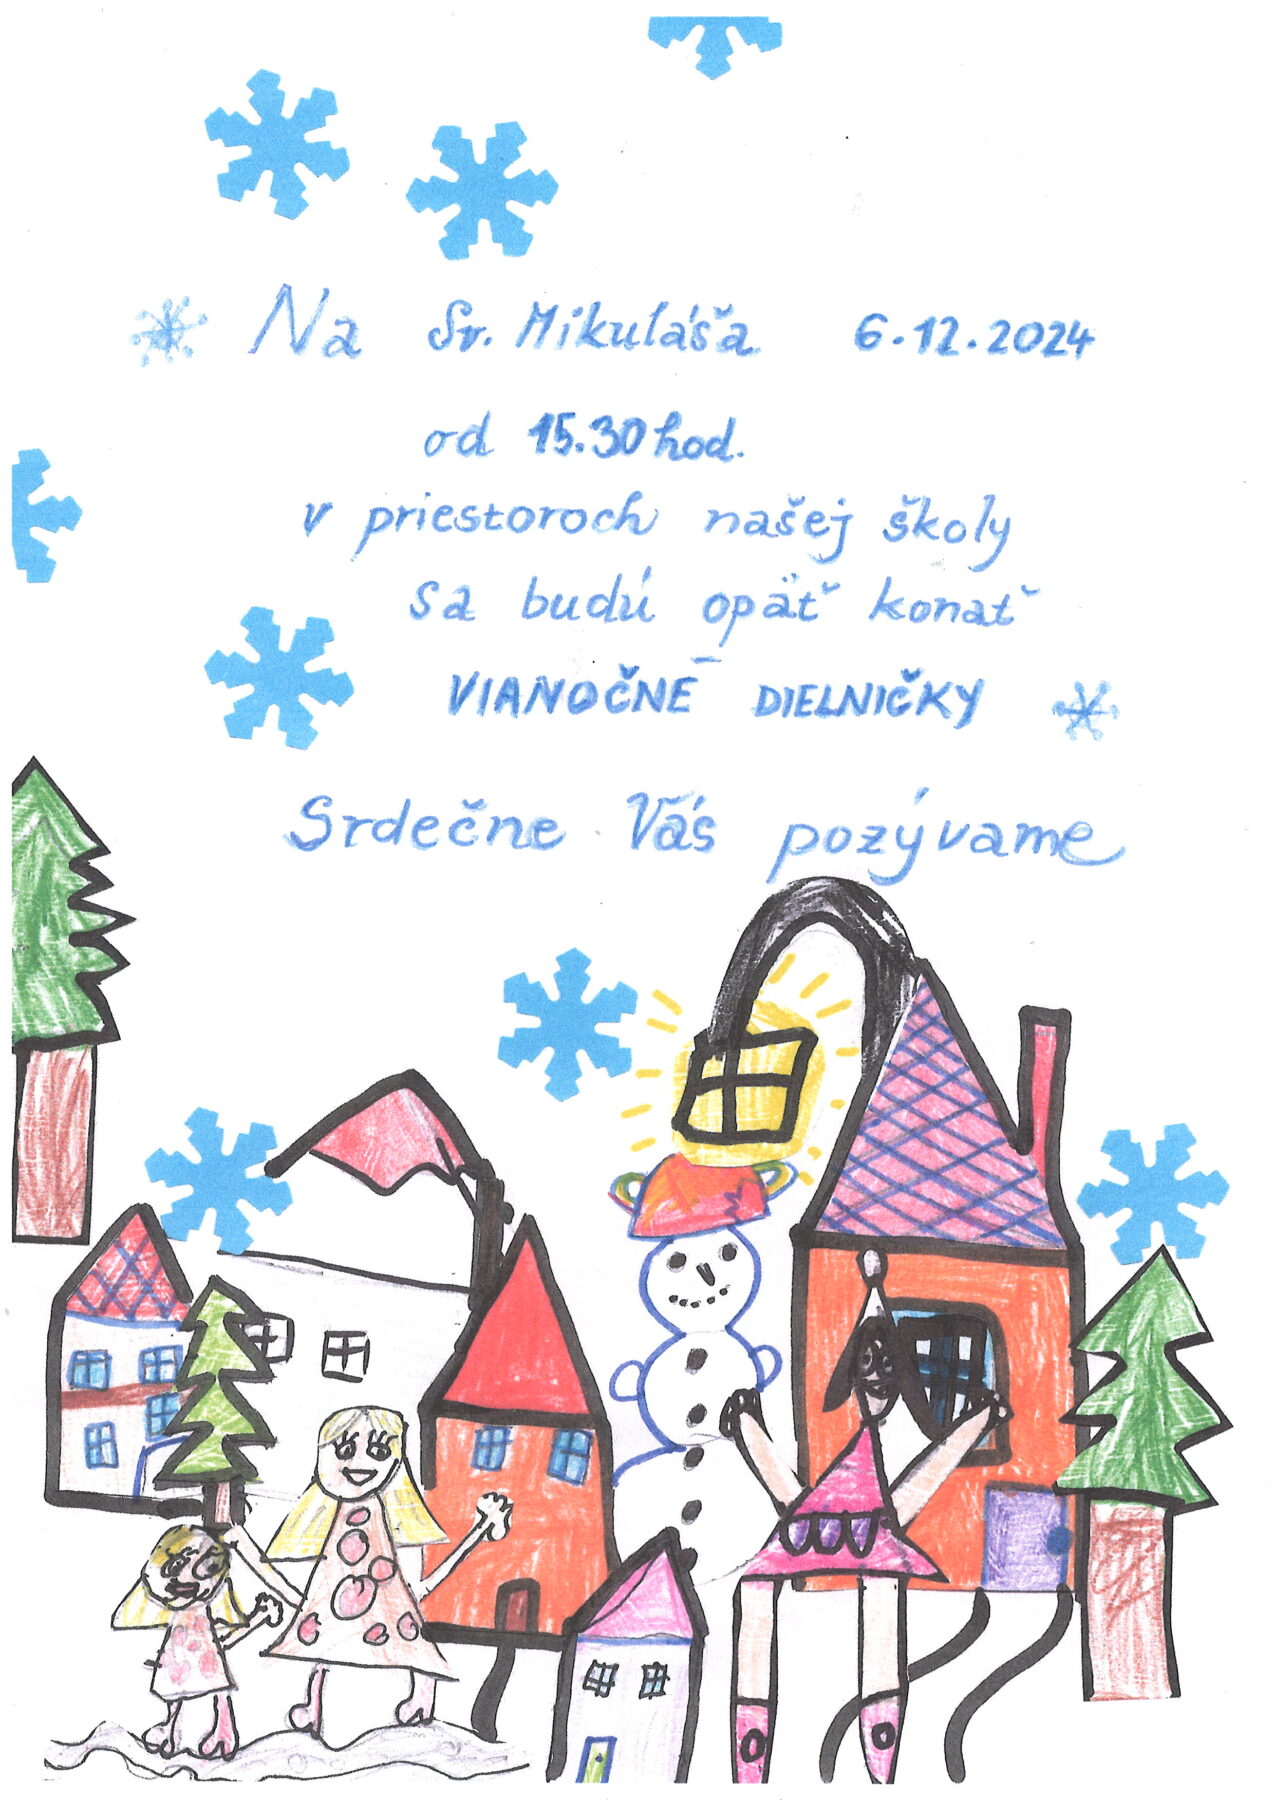 Na Sv. Mikuláša 6.12.2024
od 15.30 hod.
v priestoroch našej školy
sa budú opäť konať
VIANOČNÉ DIELNIČKY
Srdečne Vás pozývame